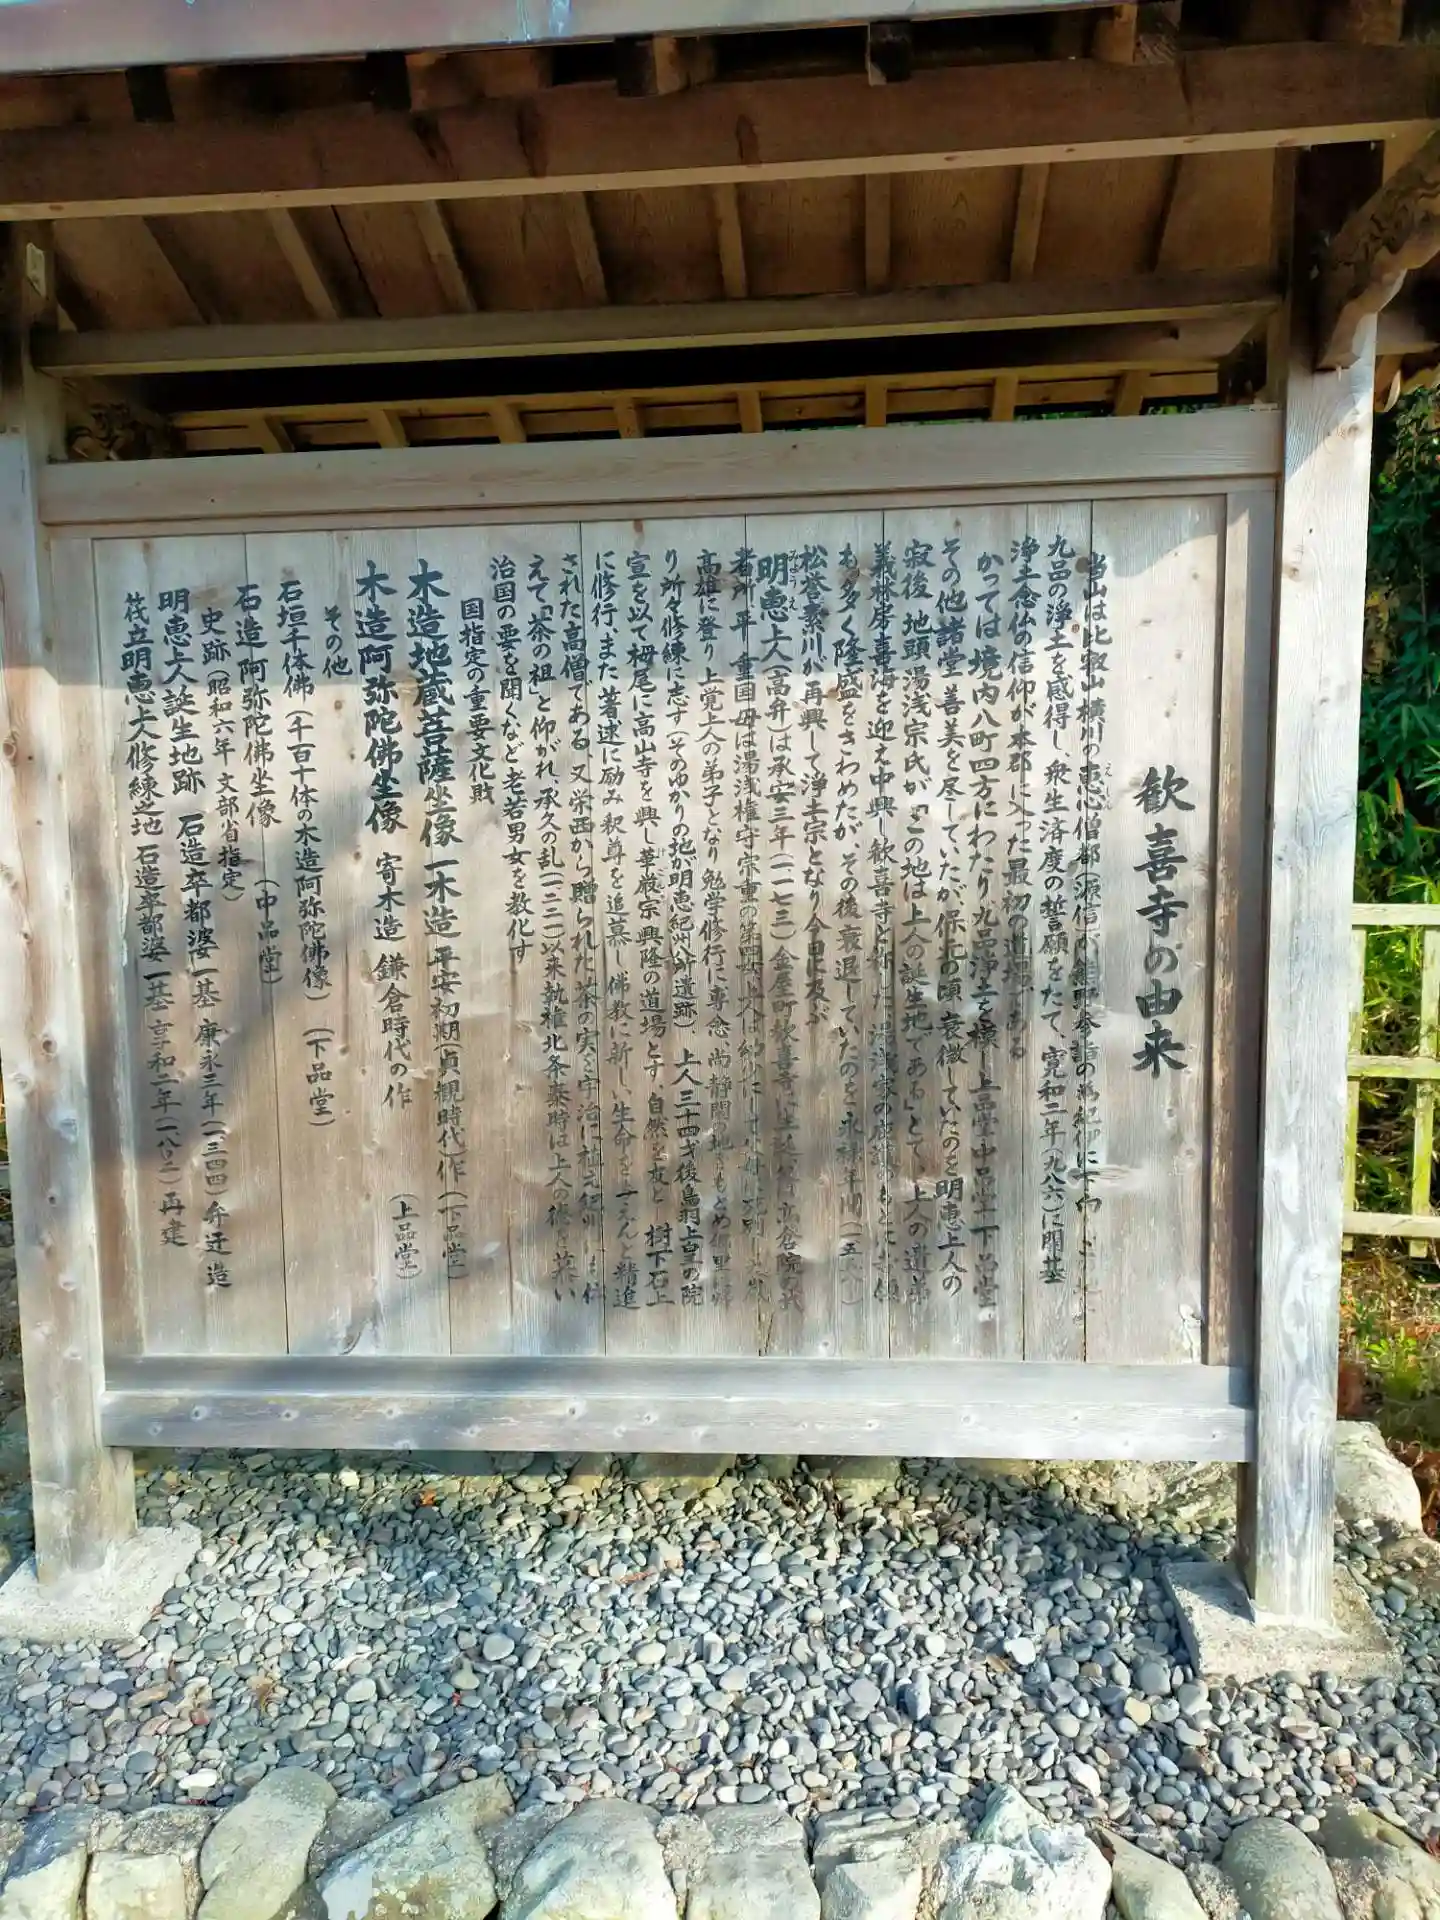 歓喜寺の由来
当山は比叡山横川の恵心僧都(源信)が熊野参詣の為紀伊に下向
九品の浄土を感得し、衆生済度の誓願をたて、寛和二年(九八六)に開基
浄土念仏の信仰が本郡に入った最初の道場である
かっては境内八町四方にわたり九品浄土を模し上品堂中品堂下品堂
その他諸堂善美を尽していたが、保元の頃衰微していたのを明恵上人の
寂後 地頭湯浅宗氏が「この地は上人の誕生地である」とて、上人の遺弟
義林房喜海を迎え中興し歓喜寺と称した、湯浅家の庇護のもとに寺領
も多く隆盛をきわめたが、その後衰退していたのを永禄年間(一五六一)
松誉素川が再興して浄土宗となり今日に及ぶ
明恵上人(高弁)は承安三年(一一七三)金屋町歓喜寺に生誕 父は高倉院の武
者所、平 重国 母は湯浅権守宗重の第四女 上人は幼少にして父母に死別し九歳
高雄に登り上覚上人の弟子となり勉学修行に専念、尚静閑の地をもとめ郷里に帰
り所々修練に志す(そのゆかりの地が明恵紀州所遺跡)、上人三十四才後鳥羽上皇の院
宣を以て栂尾に高山寺を興し華厳宗興隆の道場とす、自然を友と 樹下石上
に修行、また著述に励み釈尊を追慕し佛教に新しい生命を与えんと精進
された高僧である、又栄西から贈られた茶の実を宇治に植え紀州にも伝
えて「茶の祖」と仰がれ、承久の乱(一二二一)以来執権北条泰時は上人の徳を慕い
治国の要を聞くなど老若男女を教化す
国指定の重要文化財
木造地蔵菩薩坐像 一木造 平安初期(貞観時代)作(下品堂)
木造阿弥陀佛坐像 寄木造 鎌倉時代の作 (上品堂)
その他
石垣千体佛(千百十体の木造阿弥陀佛像)(下品堂)
石造阿弥陀佛坐像 (中品堂)
史跡(昭和六年 文部省指定)
明恵上人誕生地跡 石造卒都婆一基 康永三年(一三四四)弁迂造
筏立明恵上人修練之地 石造卒都婆一基 享和二年(一八〇二)再建